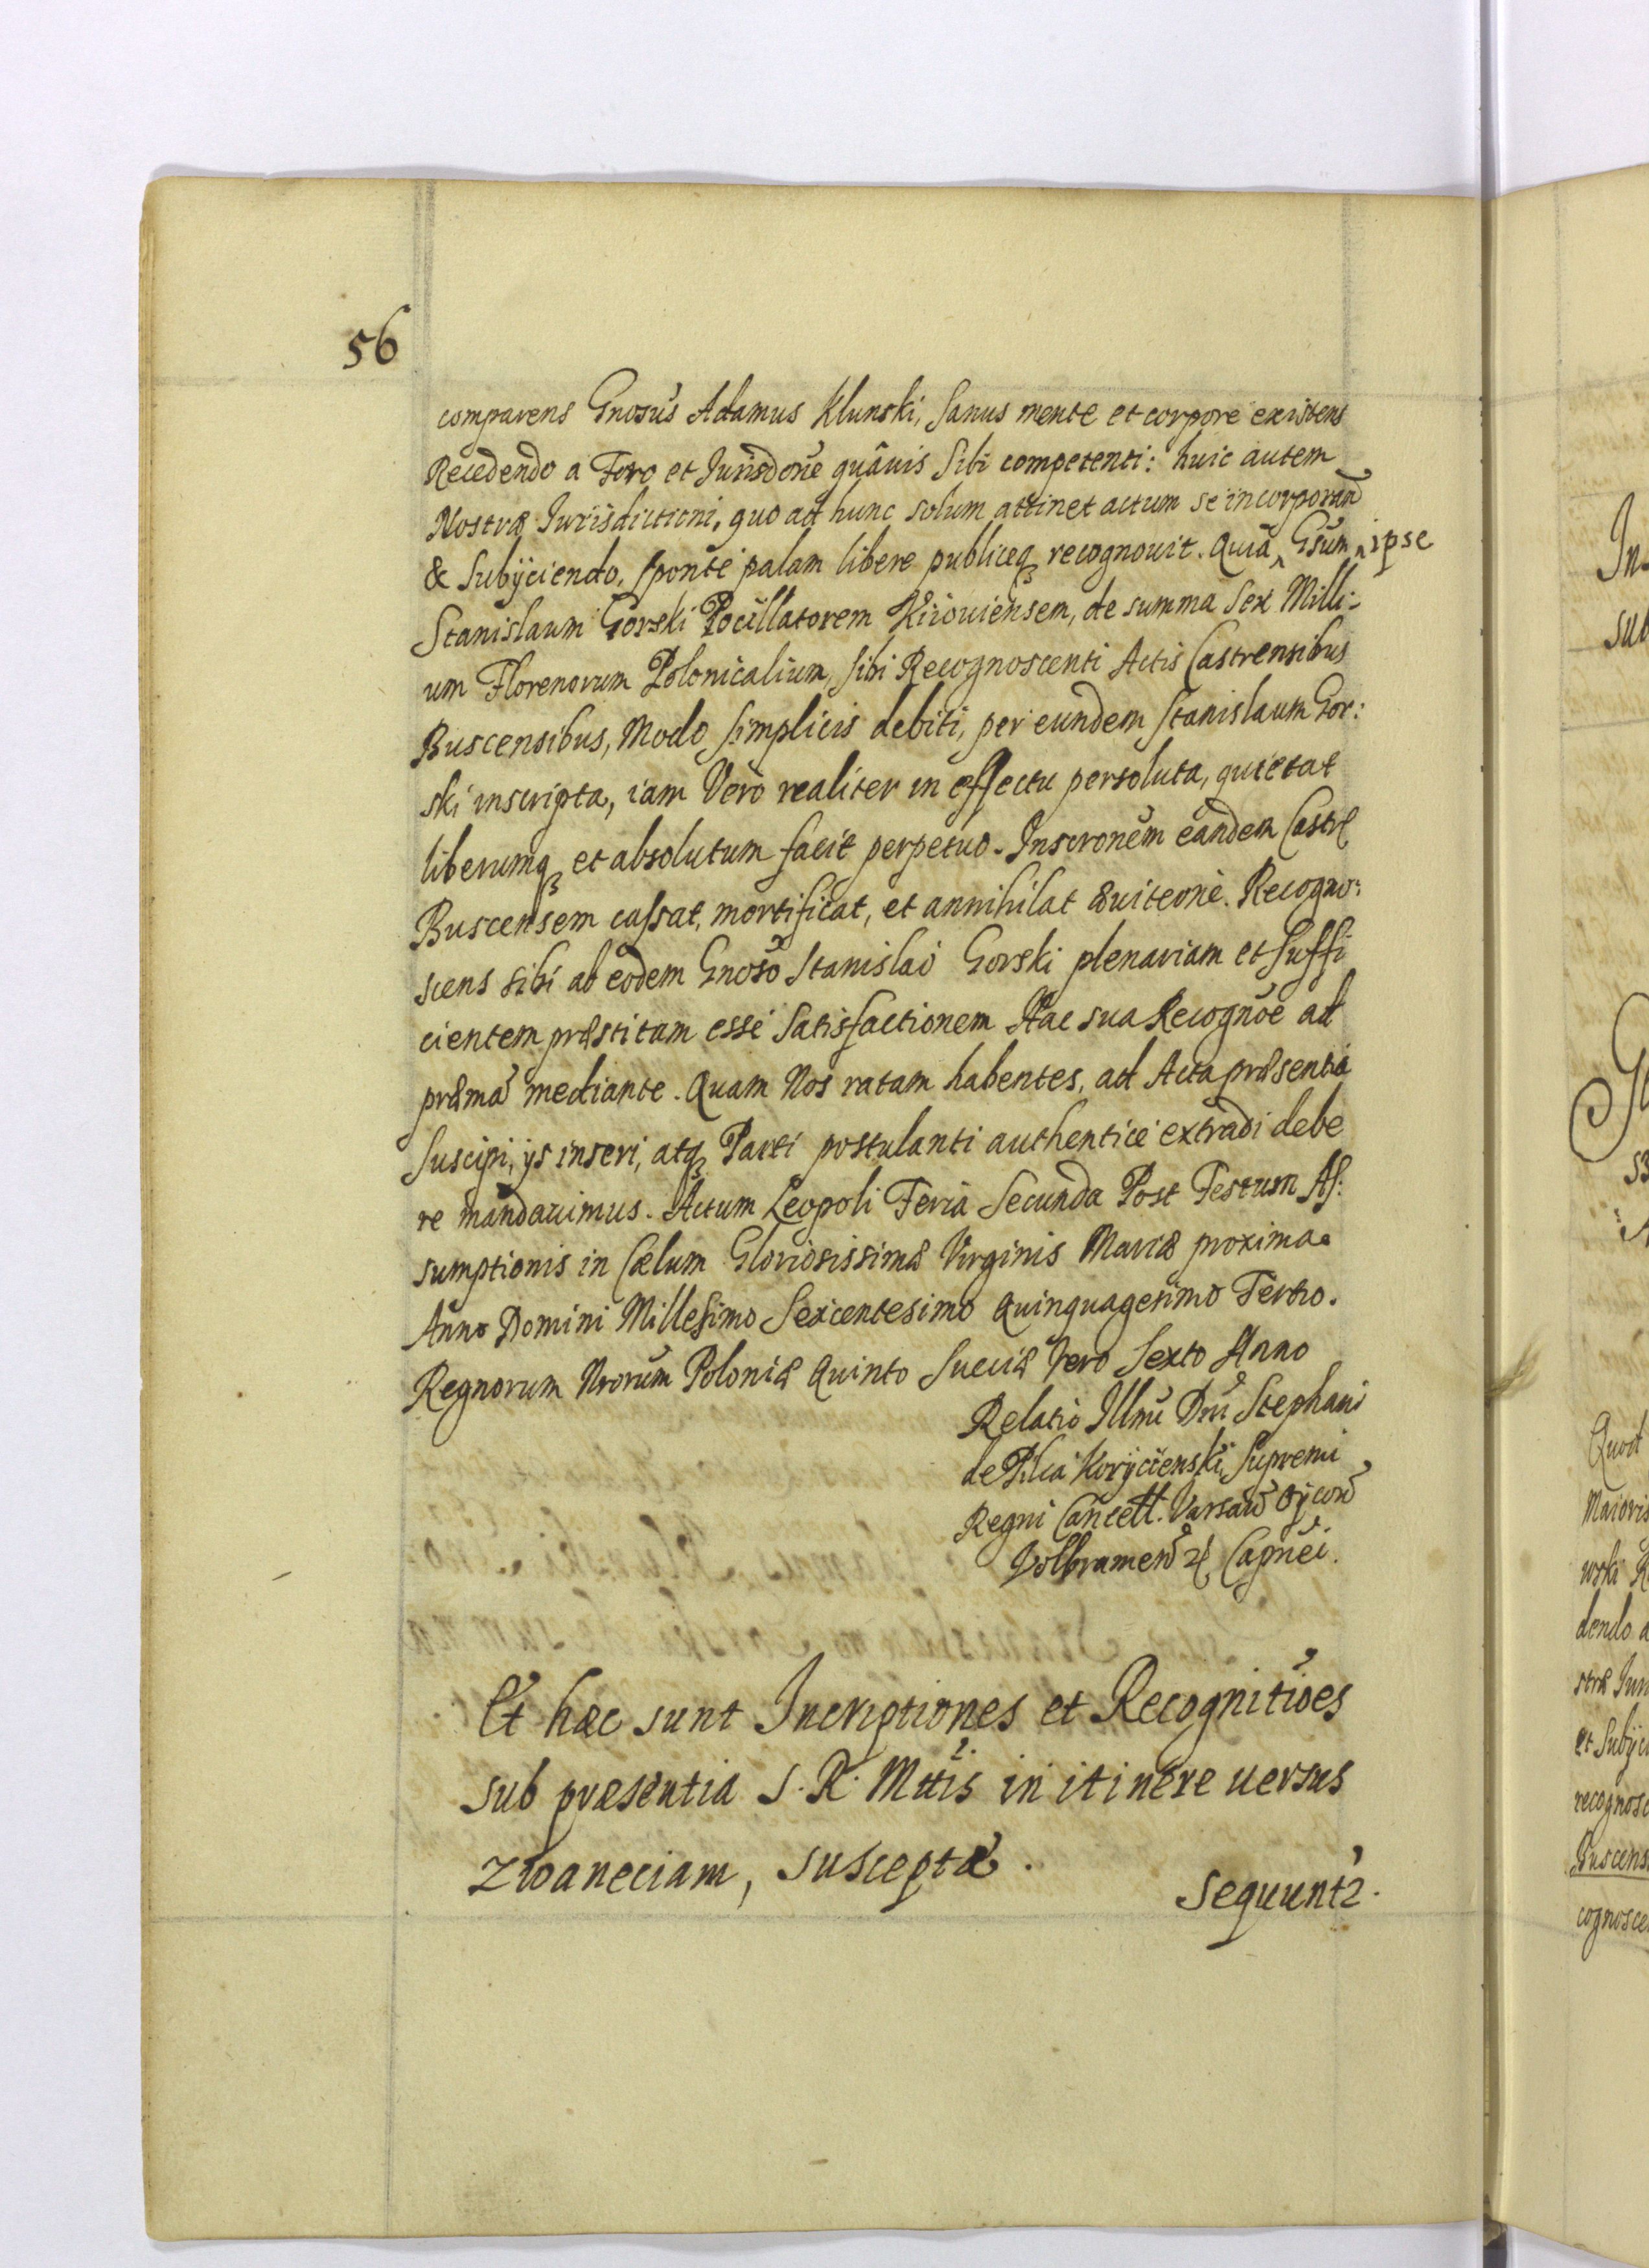 56
comparens Gnosus Adamus Klunski, Sanus mente et corpore existens
Recedendo a Foro et Jurisdone quâuis Sibi competenti: huic autem
Nostræ Jurisdictioni, quo ad hunc solum attinet actum se incorporand
& Subÿciendo, sponte palam libere publiceqꝫ recognouit. Quia ‸ Gsum ‸ ipse
Stanislaum Gorski Pocillatorem Kiiouiensem, de summa Sex Milli:
um Florenorum Polonicalium, sibi Recognoscenti Actis Castrensibus
Buscensibus, Modo simplicis debiti, per eundem Stanislaum Gor:
ski inscripta, iam Vero realiter in effectu persoluta, quietat
liberumqꝫ et absolutum facit perpetuo. Inscronem eandem Castr
Buscensem cassat, mortificat, et annihilat Recogno:
scens sibi ab eodem Gnoso Stanislao Gorski plenariam et Suffi
cientem præstitam esse Satisfactionem Hac sua Recognoe ad
præma mediante. Quam Nos ratam habentes, ad Acta præsentia
Suscipi, ÿs inseri, atqꝫ Parti postulanti authentice extradi debe
re mandauimus. Actum Leopoli Feria Secunda Post Festum As:
sumptionis in Cælum Gloriosissimæ Virginis Mariæ proxima.
Anno Domini Millesimo Sexcentesimo Quinquagesimo Tertio.
Regnorum Nrorum Poloniæ Quinto Sueciæ Vero Sexto Anno
Relatio Illmi Dni Stephani
de Pilca Korÿcienski Supremi
Regni Cancell. Varsau Oÿcou
Volbramen Capnei.
Et hæc sunt Incriptiones et Recognitioes
sub præsentia S. R. Mttis in itinere uersus
Zwaneciam, susceptæ.
Sequunt2.